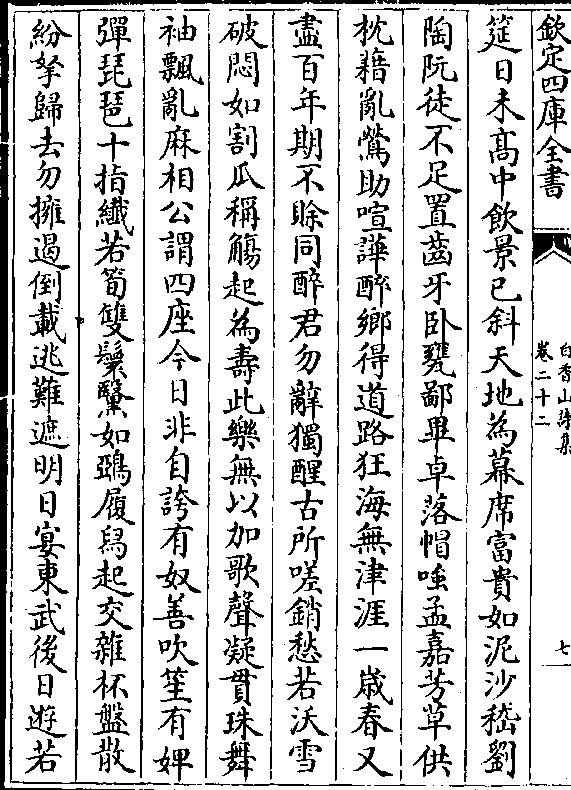 欽定四庫全書
白香山詩集
卷二十二
七
筵日未高中飲景已斜天地為幕席富貴如泥沙嵇劉
陶阮徒不足置齒牙卧甕鄙畢卓落帽唾孟嘉芳草供
枕藉亂鶯助喧譁醉鄉得道路狂海無津涯一歲春又
盡百年期不賒同醉君勿辭獨醒古所嗟銷愁若沃雪
破悶如割瓜稱觴起為壽此樂無以加歌聲凝貫珠舞
袖飄亂麻相公謂四座今日非自誇有奴善吹笙有婢
彈琵琶十指纖若筍雙鬟黳如鴉履舄起交雜杯盤散
紛拏歸去勿擁遏倒載逃難遮明日宴東武後日遊若